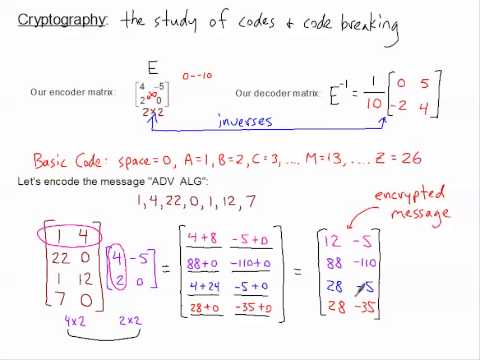 Cryptography: the study of codes & code breaking
E
0--10
Our encoder matrix: [4 -5; 2 0]
2x2
Our decoder matrix: E⁻¹ = 1/10 [0 5; -2 4]
inverses
Basic Code: space=0, A=1, B=2, C=3, .... M=13, .... Z=26
Let's encode the message "ADV ALG":
1, 4, 22, 0, 1, 12, 7
encrypted
message
[1 4; 22 0; 1 12; 7 0] [4 -5; 2 0] = [4+8 -5+0; 88+0 -110+0; 4+24 -5+0; 28+0 -35+0] = [12 -5; 88 -110; 28 -5; 28 -35]
4x2 2x2